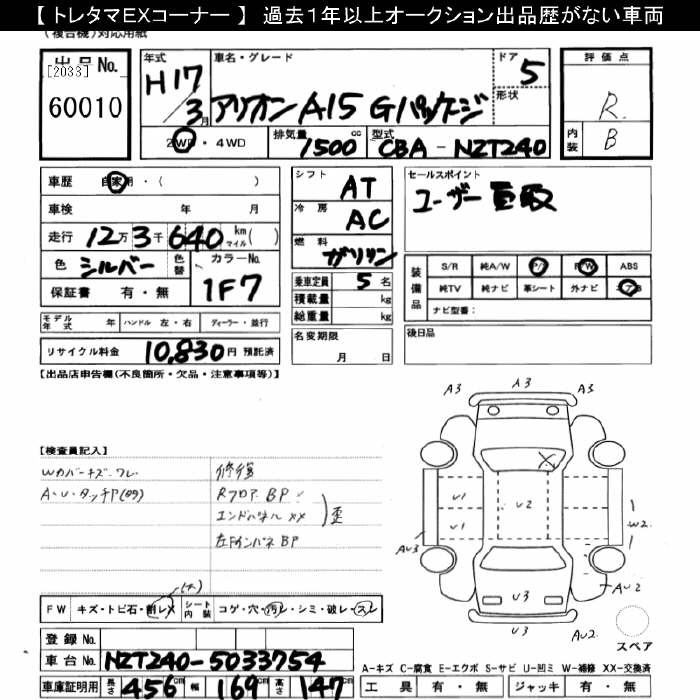 【 トレタマEXコーナー 】 過去1年以上オークション出品歴がない車両
(複合機)対応用紙
出品No.
[2033]
60010
年式 車名・グレード ドア
H17/3月 アリオン A15 Gパッケージ 5
形状
2WD・4WD 排気量 1500 cc 型式 CBA-NZT240
評価点
R
内装 B
車歴 自家用・( )
車検 年 月
走行 12万3千640 km マイル( )
色 シルバー 色替 カラーNo. 1F7
保証書 有・無
シフト AT
冷房 AC
燃料 ガソリン
乗車定員 5名
積載量 kg
総重量 kg
名変期限
月 日
セールスポイント
ユーザー買取
装備品 S/R 純A/W P/S P/W ABS
純TV 純ナビ 革シート 外ナビ エアB
ナビ型番:
後日品
モデル年式 年 ハンドル 左・右 ディーラー・並行
リサイクル料金 10,830円 預託済
【出品店申告欄(不良箇所・欠品・注意事項等)】
【検査員記入】
Wカバーキズ・ワレ
A・U・タッチP(多)
修復
Rフロア BP
エンドパネル XX
歪
左Rインパネ BP
A3 A3 A3
U1 U2 W2
U1
AU3 AU2
U3
U3 AU2
スペア
(大)
FW キズ・トビ石・割レX シート内装 コゲ・穴・汚レ・シミ・破レ・スレ
登録No.
車台No. NZT240-5033754
車庫証明用 長さ 456cm 幅 169cm 高さ 147cm
A-キズ C-腐食 E-エクボ S-サビ U-凹ミ W-補修 XX-交換済
工具 有・無 ジャッキ 有・無